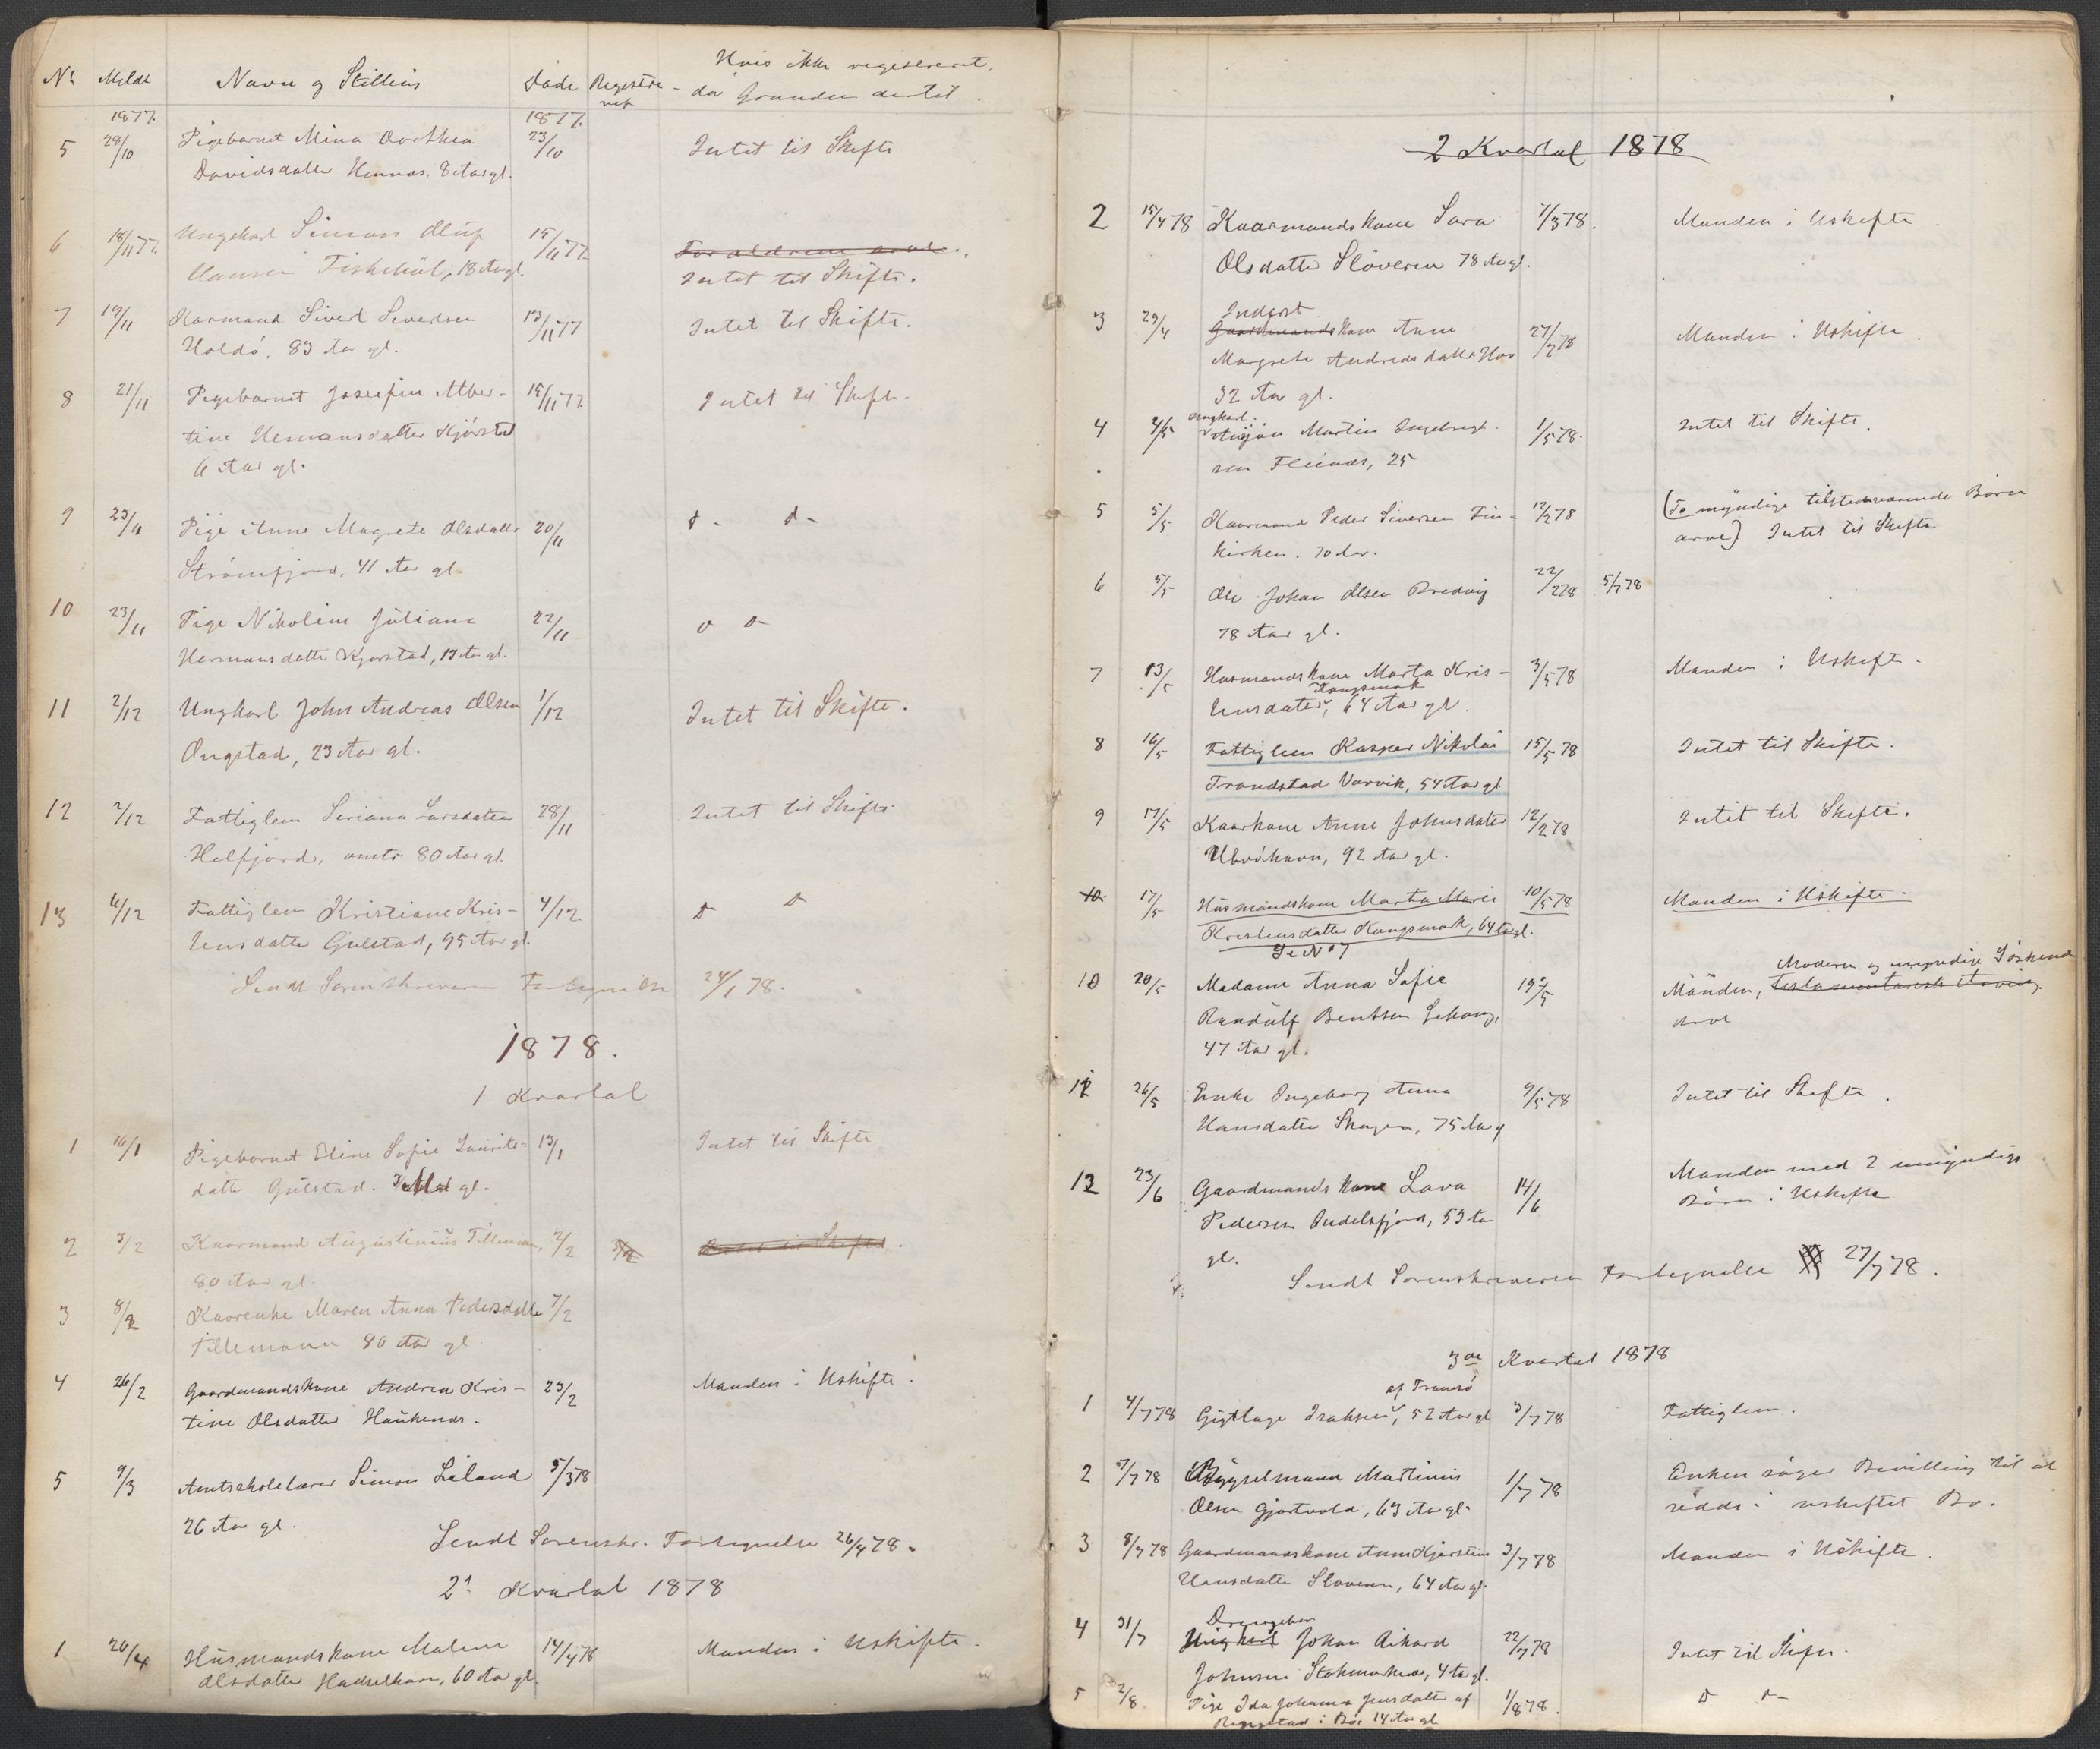 No Meldt Navn og Stilling Døde Registre- Hvis ikke registreret,
ret da Grunden dertil.
1877. 1877.
5 29/10 Pigebarnet Mina Dorthea 23/10 Intet til Skifte
Davidsdatter Hennes, 8 Aar gl.
6 18/11 77. Ungkarl Simon Oluf 15/11 77 Forældrene arve.
Hansen Fiskebøl, 18 Aar gl. Intet til Skifte.
7 19/11 Kaarmand Sivert Sivertsen 13/11 77 Intet til Skifte.
Holdø, 83 Aar gl.
8 21/11 Pigebarnet Josefine Alber- 15/11 77 Intet til Skifte.
tine Hermansdatter Kjørstad
6 Aar gl.
9 23/11 Pige Anne Magrete Olsdatter 20/11 d- d-
Strømfjord, 41 Aar gl.
10 23/11 Pige Nikoline Juliane 22/11 d d-
Hermansdatter Kjørstad, 13 Aar gl.
11 2/12 Ungkarl John Andreas Olsen 1/12 Intet til Skifte.
Ongstad, 23 Aar gl.
12 2/12 Fattiglem Siriana Larsdatter 28/11 Intet til Skifte
Helfjord, omtr 80 Aar gl.
13 6/12 Fattiglem Kristiane Kris- 4/12 d d
tensdatter Gulstad, 95 Aar gl.
Sendt Sorenskriveren Fortegnelse 24/1 78.
1878.
1 Kvartal
1 16/1 Pigebarnet Eline Sofie Laurits- 13/1 Intet til Skifte
datter Gulstad. gl.
2 3/2 Kaarmand Augustinius Tillemann, 2/2 Intet til Skifte.
80 Aar gl.
3 8/2 Kaarenke Maren Anna Pedersdatter 7/2
Tillemann 80 Aar gl.
4 26/2 Gaardmandskone Andrea Kris- 23/2 Manden i Uskifte.
tine Olsdatter Haukenes.
5 9/3 Amtsskolelærer Simon Liland 5/3 78
26 Aar gl.
Sendt Sorenskr. Fortegnelse 26/4 78.
2. Kvartal 1878
1 20/4 Husmandskone Malene 14/4 78 Manden i Uskifte.
Olsdatter Hadselhavn, 60 Aar gl.
2 Kvartal 1878
2 15/4 78 Kaarmandskone Sara 7/3 78. Manden i Uskifte.
Olsdatter Sløveren 78 Aar gl.
Inderst
3 29/4 Gaardmandskone Anne 27/2 78 Manden i Uskifte.
Margrete Andreasdatter Hov
32 Aar gl.
ungkarl.
4 4/5 Ansjøn Martin Ingebrigt- 1/5 78. Intet til Skifte.
sen Flesnes, 25
5 5/5 Kaarmand Peder Siversen Fin- 12/2 78 (To myndige tilstedeværende Børn
kirken. 70 Aar. arve) Intet til Skifte
6 5/5 Ole Johan Olsen Bredvig 22/2 78 5/7 78
78 Aar gl.
7 13/5 Husmandskone Marta Kris- 3/5 78 Manden i Uskifte.
Kongsmark
tensdatter, 64 Aar gl.
8 16/5 Fattiglem Kasper Nikolai 15/5 78 Intet til Skifte.
Trandstad Varvik, 54 Aar gl
9 17/5 Kaarkone Anne Johnsdatter 12/2 78 Intet til Skifte.
Ulvøhavn, 92 Aar gl.
10 17/5 Husmandskone Marta Marie 10/5 78 Manden i Uskifte.
Kristensdatter Kongsmark, 64 Aar gl.
Se No 7
Moderen og umyndige Søskende
10 20/5 Madame Anna Sofie 19/5 Manden, Testamentarisk Arving.
Randulf Bentsen Lekang, arve
47 Aar gl.
11 26/5 Enke Ingeborg Anna 9/5 78 Intet til Skifte.
Hansdatter Skagen, 75 Aar g
12 23/6 Gaardmandskone Lava 14/6 Manden med 2 umyndige
Pedersen Indelsfjord, 53 Aar Børn i Uskifte
gl.
Sendt Sorenskriveren Fortegnelse 27/7 78.
3die Kvartal 1878
af Tromsø
1 4/7 78 Gift Lage Isaksen, 52 Aar gl 3/7 78 Fattiglem.
2 7/7 78 Bygselmann Martinius 1/7 78 Enken søger Bevilling til at
Olsen Gjørtvold, 63 Aar gl. sidde i uskiftet Bo.
3 8/7 78 Gaardmandskone Anne Kjerstine 3/7 78 Manden i Uskifte.
Hansdatter Sløveren, 64 Aar gl.
Drengebar
4 31/7 Ungkarl Johan Rikard 22/7 78 Intet til Skifte.
Johnsen Stokmarknes, 4 Aar gl.
5 2/8 Pige Ida Johanna Jensdatter af 1/8 78. d d-
Ringstad i Bø 14 Aar gl